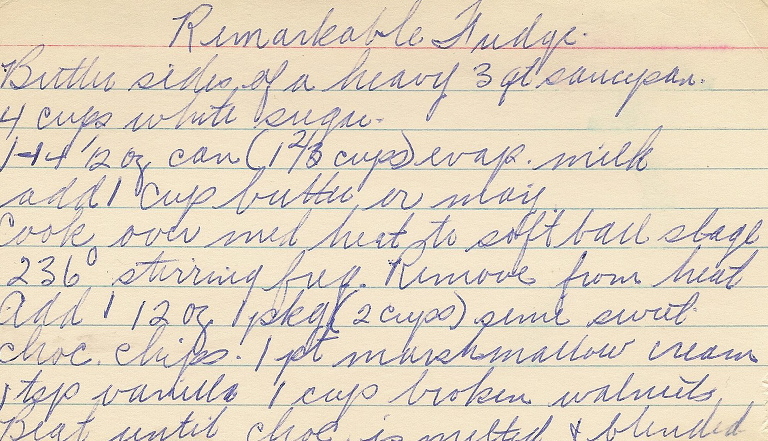 Remarkable Fudge.
Butter sides of a heavy 3 qt saucepan.
4 cups white sugar.
1-14 1/2 oz can (1 2/3 cups) evap. milk
add 1 cup butter or marg
Cook over med heat to soft ball stage
236° stirring freq. Remove from heat
Add 1 12 oz pkg (2 cups) semi sweet
choc. chips. 1 pt marshmallow cream
1 tsp vanilla 1 cup broken walnuts
Beat until choc is melted & blended